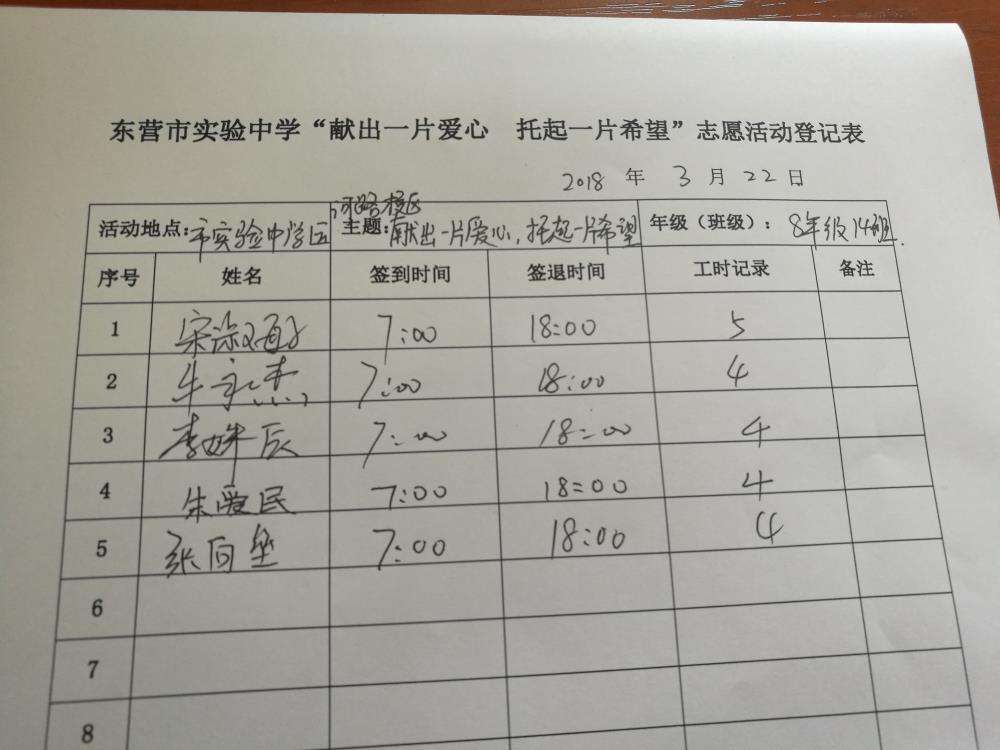 东营市实验中学“献出一片爱心 托起一片希望”志愿活动登记表
2018 年 3 月 22 日
活动地点:市实验中学 河路校区 主题:献出一片爱心,托起一片希望 年级(班级):8年级14班.
序号 姓名 签到时间 签退时间 工时记录 备注
1 宋 7:00 18:00 5
2 牛永杰 7:00 18:00 4
3 李姝辰 7:00 18:00 4
4 朱爱民 7:00 18:00 4
5 张向垒 7:00 18:00 4
6
7
8